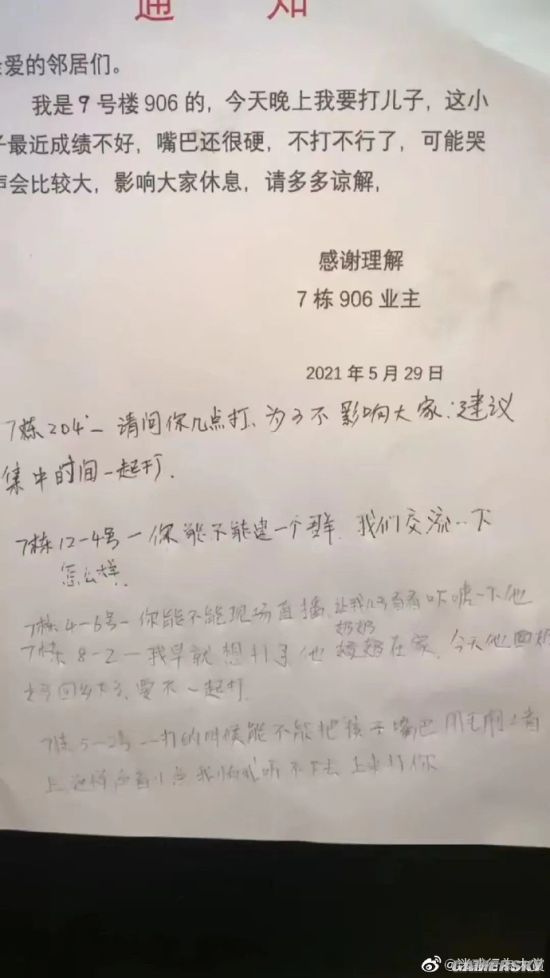 通 知
爱的邻居们。
我是9号楼906的，今天晚上我要打儿子，这小
子最近成绩不好，嘴巴还很硬，不打不行了，可能哭
声会比较大，影响大家休息，请多多谅解，
感谢理解
7栋906业主
2021年5月29日
7栋204'—请问你几点打、为了不影响大家：建议
集中时间一起打.
7栋12-4号—你能不能建一个群.我们交流一下
怎么样.
7栋4-6号—你能不能现场直播,让我儿子看看吓唬一下他
奶奶
7栋8-2—我早就想打了他在家.今天他
回要不一起打.
7栋5-2号—打的时候能不能把孩子嘴巴用毛巾
上这样声音小点我怕我听不下去上来打你
GAMERSKY